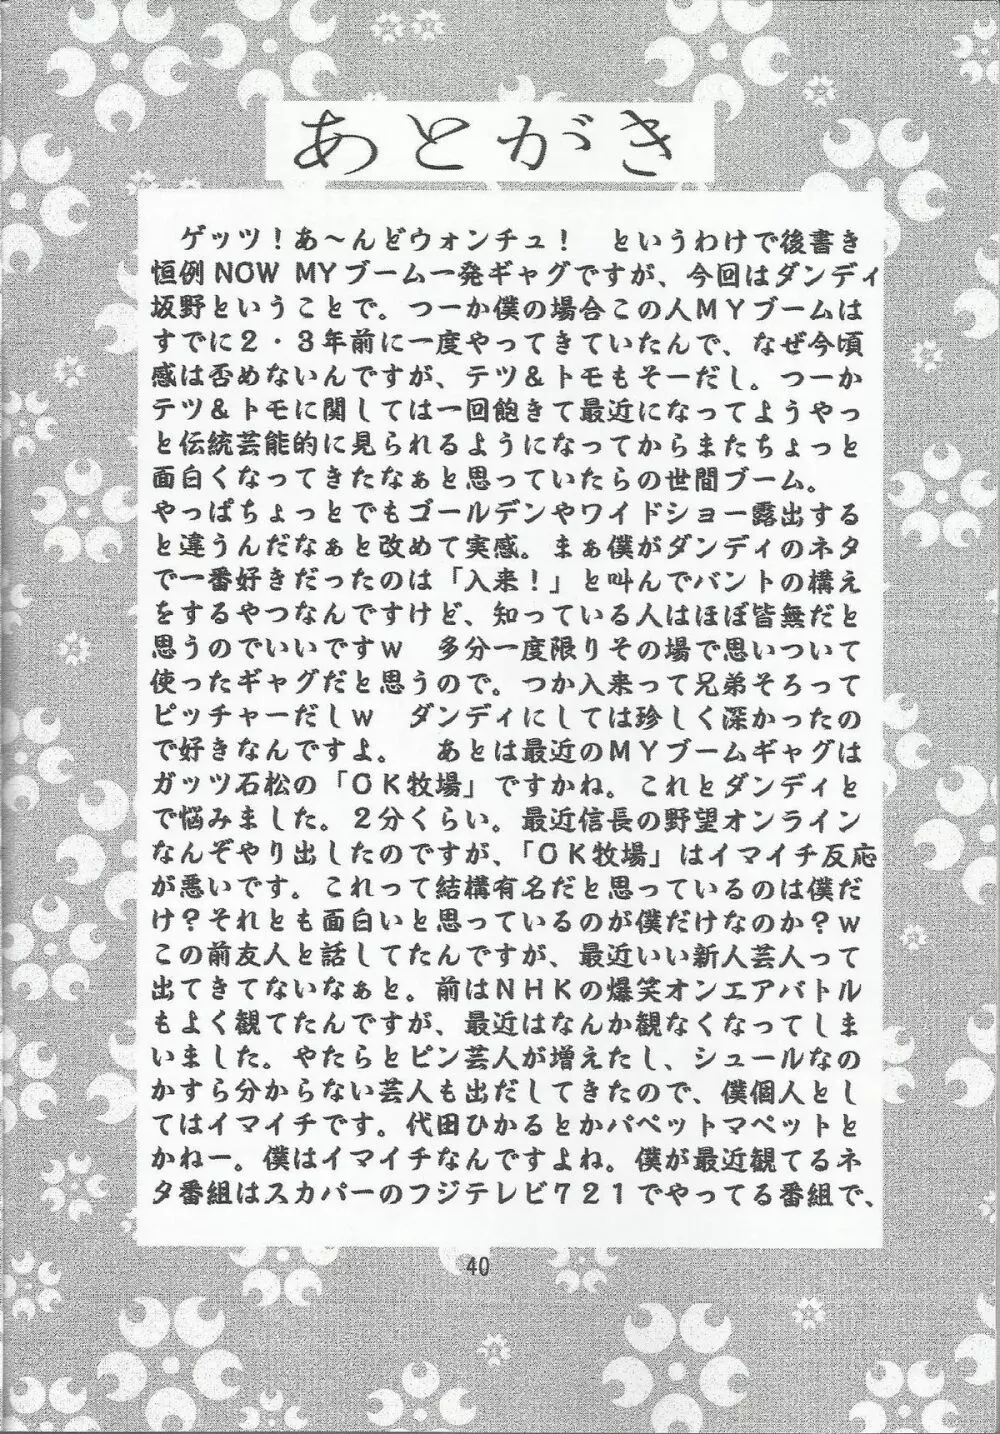 あとがき
ゲッツ！あ～んどウォンチュ！　というわけで後書き
恒例NOW MYブーム一発ギャグですが、今回はダンディ
坂野ということで。つーか僕の場合この人MYブームは
すでに２・３年前に一度やってきていたんで、なぜ今頃
感は否めないんですが、テツ＆トモもそーだし。つーか
テツ＆トモに関しては一回飽きて最近になってようやっ
と伝統芸能的に見られるようになってからまたちょっと
面白くなってきたなぁと思っていたらの世間ブーム。
やっぱちょっとでもゴールデンやワイドショー露出する
と違うんだなぁと改めて実感。まぁ僕がダンディのネタ
で一番好きだったのは「入来！」と叫んでバントの構え
をするやつなんですけど、知っている人はほぼ皆無だと
思うのでいいですｗ　多分一度限りその場で思いついて
使ったギャグだと思うので。つか入来って兄弟そろって
ピッチャーだしｗ　ダンディにしては珍しく深かったの
で好きなんですよ。　あとは最近のMYブームギャグは
ガッツ石松の「OK牧場」ですかね。これとダンディと
で悩みました。２分くらい。最近信長の野望オンライン
なんぞやり出したのですが、「OK牧場」はイマイチ反応
が悪いです。これって結構有名だと思っているのは僕だ
け？それとも面白いと思っているのが僕だけなのか？ｗ
この前友人と話してたんですが、最近いい新人芸人って
出てきてないなぁと。前はNHKの爆笑オンエアバトル
もよく観てたんですが、最近はなんか観なくなってしま
いました。やたらとピン芸人が増えたし、シュールなの
かすら分からない芸人も出だしてきたので、僕個人とし
てはイマイチです。代田ひかるとかパペットマペットと
かねー。僕はイマイチなんですよね。僕が最近観てるネ
タ番組はスカパーのフジテレビ７２１でやってる番組で、
40